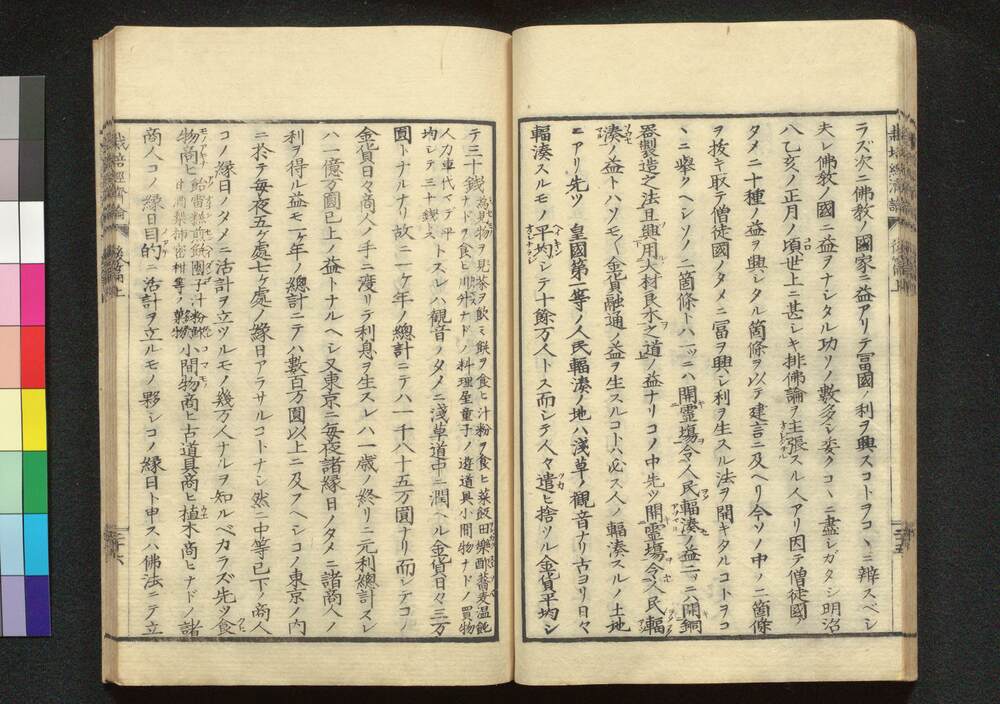 ラズ次ニ佛教ノ國家ニ益アリテ冨國ノ利ヲ興スコトヲコヽニ辯スベシ
夫レ佛教ノ國ニ益ヲナシタル功ソノ數多シ委クコヽニ盡シガタシ明治
八乙亥ノ正月ノ頃世上ニ甚シキ排佛論ヲ主張スル人アリ因テ僧徒國ノ
タメニ十種ノ益ヲ興シタル箇條ヲ以テ建言ニ及ヘリ今ソノ中ノ二箇條
ヲ抜キ取テ僧徒國ノタメニ冨ヲ興シ利ヲ生スル法ヲ開キタルコトヲコ
ヽニ擧クヘシソノ二箇條トハ一ツニハ開靈塲令人民輻湊ノ益二ツニハ開銅
器製造之法且興用大材良木之道ノ益ナリコノ中先ツ開靈塲令人民輻
湊ノ益トハソモ〱金貨融通ノ益ヲ生スルコトハ必ス人ノ輻湊スルノ土地
ニアリ先ツ 皇國第一等ノ人民輻湊ノ地ハ淺草ノ觀音ナリ古ヨリ日々
輻湊スルモノ平均シテ十餘万人トス而シテ人々遣ヒ捨ツル金貨平均シ
テ三十錢為見物ヲ見茶ヲ飲ミ餅ヲ食ヒ汁粉ヲ食ヒ菜飯田樂酢蕎麦温飩
ナドヲ食ヒ川升ナドノ料理屋童子ノ遊道具小間物ナドノ買物
人力車代マデ平均シテ三十錢トストスレハ觀音ノタメニ淺草道中ニ潤ヘル金貨日々三万
圓トナルナリ故ニ一ケ年ノ總計ニテハ一千八十五万圓ナリ而シテコノ
金貨日々商人ノ手ニ渡リテ利息ヲ生スレハ一歳ノ終リニ元利總計スレ
ハ一億万圓已上ノ益トナルヘシ又東京ニ毎夜諸緣日ノタメニ諸商人ノ
利ヲ得ル益モ一ケ年ノ總計ニテハ數百万圓以上ニ及フヘシコノ東京ノ内
ニ於テ毎夜五ケ處七ケ處ノ緣日アラサルコトナシ然ニ中等已下ノ商人
コノ緣日ノタメニ活計ヲ立ツルモノ幾万人ナルヲ知ルベカラズ先ツ食
物商ヒ飴雷粔煎餅團子汁粉酢小間物商ヒ古道具商ヒ植木商ヒナドノ諸
商人コノ緣日目的ニ活計ヲ立ルモノ夥シコノ緣日ト申スハ佛法ニテ立
栽培經濟論 後篇上